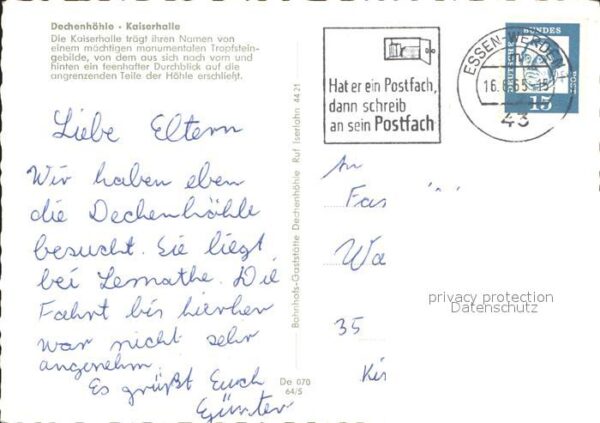 Dechenhöhle · Kaiserhalle
Die Kaiserhalle trägt ihren Namen von
einem mächtigen monumentalen Tropfstein-
gebilde, von dem aus sich nach vorn und
hinten ein feenhafter Durchblick auf die
angrenzenden Teile der Höhle erschließt.
Liebe Eltern
Wir haben eben
die Dechenhöhle
besucht. Sie liegt
bei Lemathe. Die
Fahrt bis hierher
war nicht sehr
angenehm.
Es grüßt Euch
Günter
De 070
64/5
Bahnhofs-Gaststätte Dechenhöhle Ruf Iserlohn 44 21
Hat er ein Postfach,
dann schreib
an sein Postfach
ESSEN-WERDEN
43
DEUTSCHE BUNDESPOST
15
An
Fa
Wa
35
privacy protection
Datenschutz